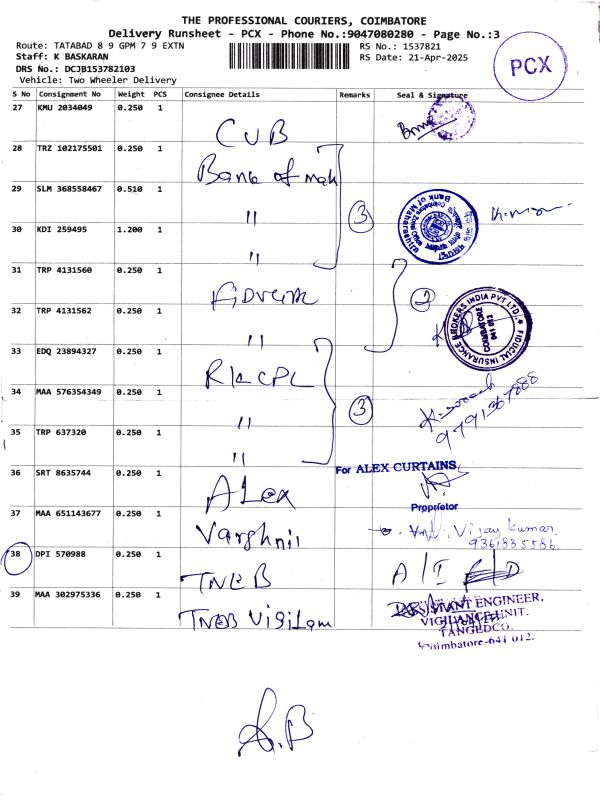 THE PROFESSIONAL COURIERS, COIMBATORE
Delivery Runsheet - PCX - Phone No.:9047080280 - Page No.:3
Route: TATABAD 8 9 GPM 7 9 EXTN
Staff: K BASKARAN
DRS No.: DCJB153782103
Vehicle: Two Wheeler Delivery
RS No.: 1537821
RS Date: 21-Apr-2025
PCX
S No Consignment No Weight PCS Consignee Details Remarks Seal & Signature
27 KMU 2034049 0.250 1 CUB
28 TRZ 102175501 0.250 1 Bank of mah
29 SLM 368558467 0.510 1 "
30 KDI 259495 1.200 1 "
3
Bank of Maharashtra
31 TRP 4131560 0.250 1
32 TRP 4131562 0.250 1 "
2
FIDUCIAL INSURANCE BROKERS INDIA PVT LTD.,
COIMBATORE
641 012
33 EDQ 23894327 0.250 1
34 MAA 576354349 0.250 1 "
35 TRP 637320 0.250 1 "
3
9791367888
36 SRT 8635744 0.250 1 ALex
For ALEX CURTAINS,
Proprietor
37 MAA 651143677 0.250 1
Vijay kumar
9361835586
38 DPI 570988 0.250 1 TNEB
39 MAA 302975336 0.250 1 TNEB
ASSISTANT ENGINEER.
VIGILANCE UNIT.
TANGEDCO.
Coimbatore-641 012.
A.B